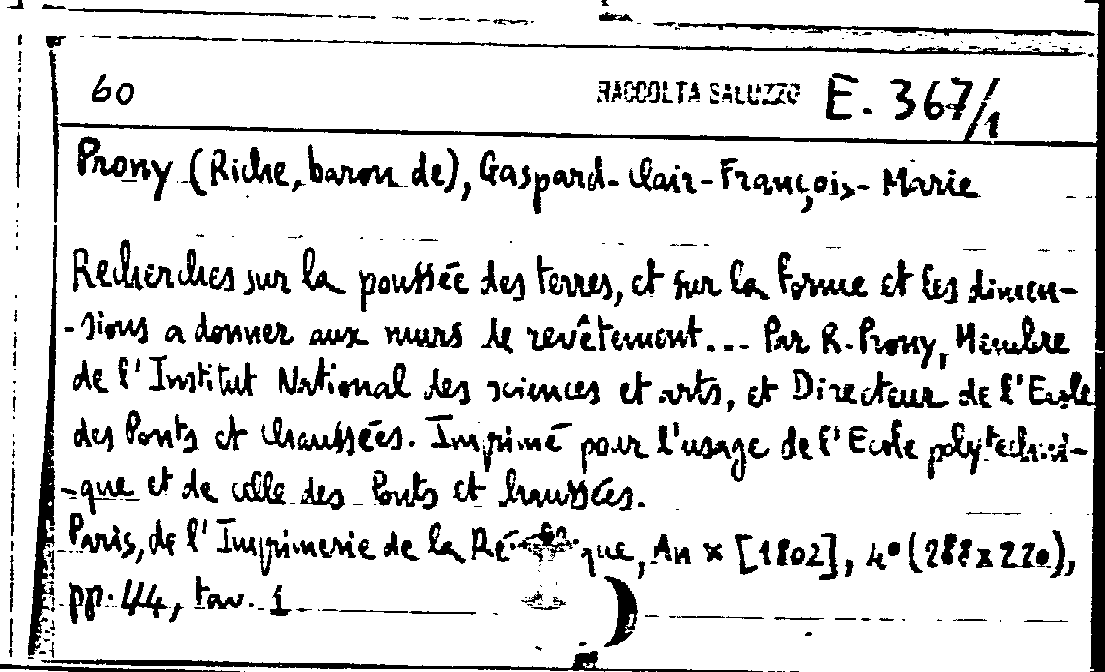 60 RACCOLTA SALUZZO E. 367/1
Prony (Riche, baron de), Gaspard-Clair-François-Marie
Recherches sur la poussée des terres, et sur la forme et les dimen-
-sions a donner aux murs de revêtement... Par R. Prony, Membre
de l'Institut National des sciences et arts, et Directeur de l'Ecole
des Ponts et Chaussées. Imprimé pour l'usage de l'Ecole polytechni-
-que et de celle des Ponts et Chaussées.
Paris, de l'Imprimerie de la République, An X [1802], 4° (288x220),
pp. 44, tav. 1